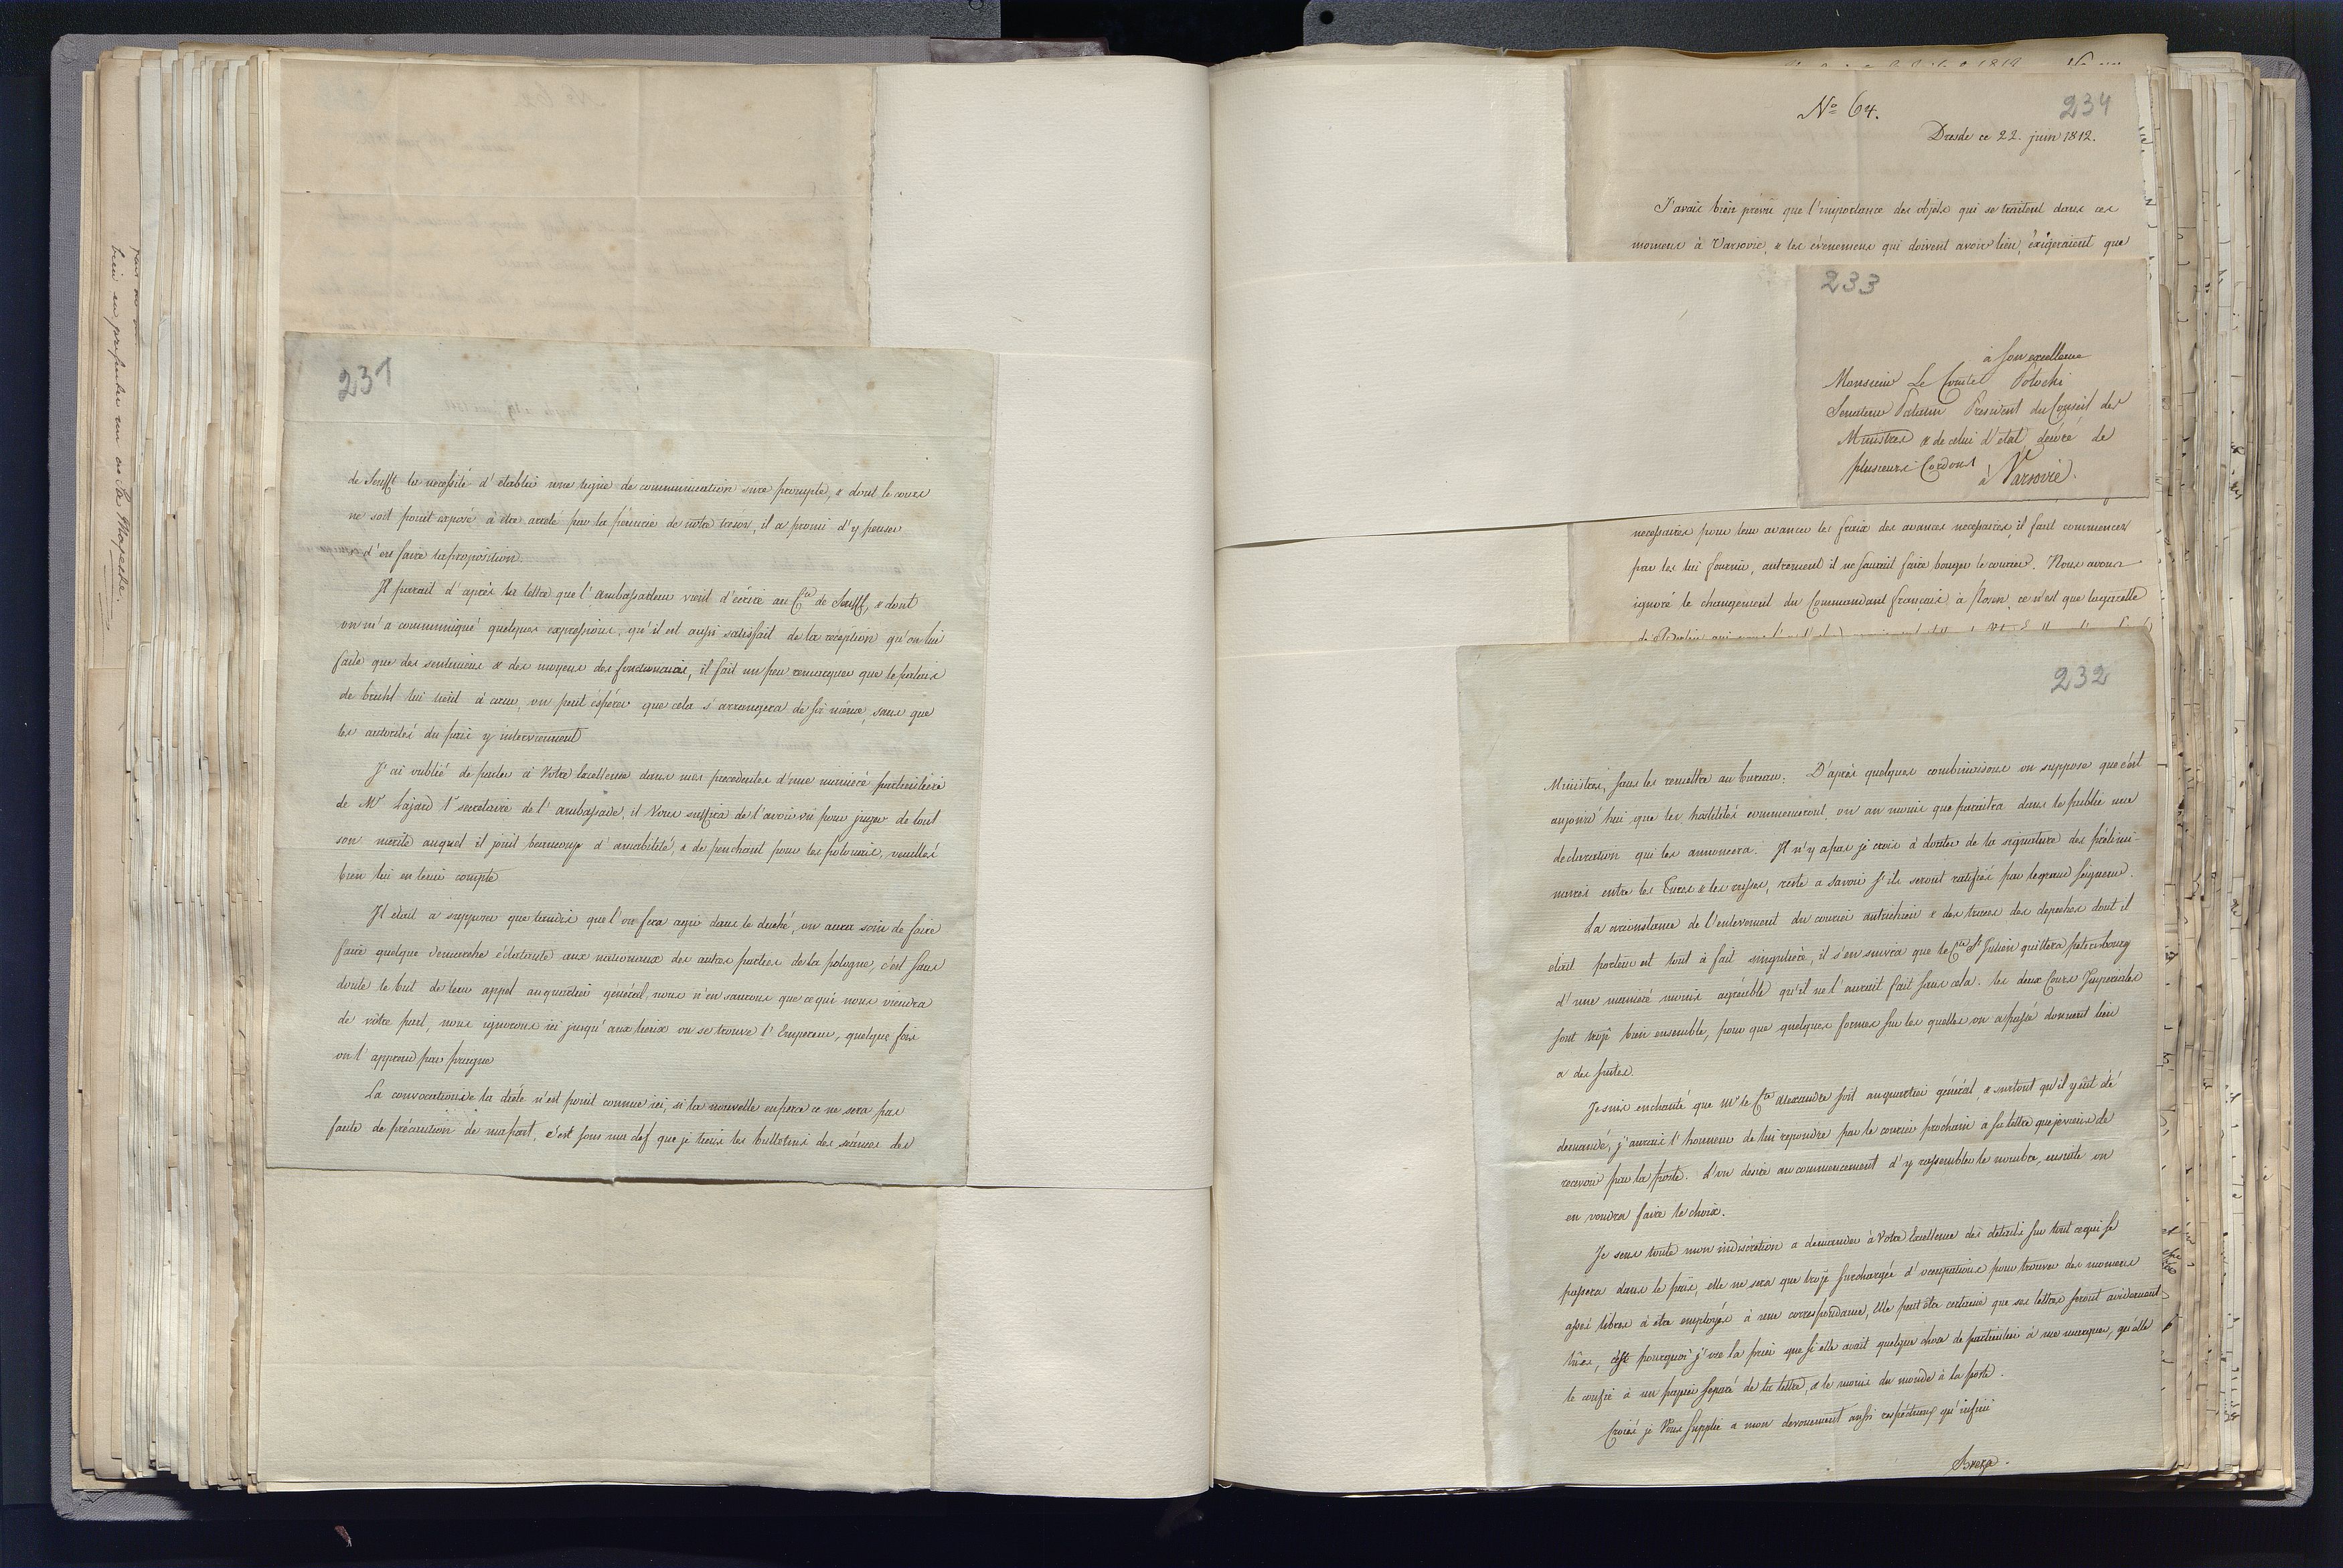 231
de Senfft la necessité d'etablir une ligne de communication sure prompte, & dont le cours
ne soit point exposé à etre arreté par la pénurie de notre tresor, il a promis d'y penser
d'en faire la proposition.
Il parait d'après la lettre que l'ambassadeur vient d'écrire au Cte de Senfft, & dont
on m'a communiqué quelques expressions, qu'il est aussi satisfait de la reception qu'on lui
faite que des sentimens & des moyens des fonctionnaires, il fait un peu remarquer que le palais
de bruhl lui tient à cœur, on peut éspérer que cela s'arrangera de soi même, sans que
les autorités du pais y interviennent
J'ai oublié de parler à Votre Excellence dans mes precedentes d'une maniere particulière
de Mr Lajard 1r secretaire de l'ambassade, il Vous suffira de l'avoir vu pour juger de tout
son merite auquel il joint beaucoup d'amabilité, & de penchant pour les polonais, veuillés
bien lui en tenir compte
Il etait a supposer que tandis que l'on fera agir dans le duché, on aura soin de faire
faire quelque demarche éclatante aux nationaux des autres parties de la pologne, c'est sans
doute le but de leur appel au quartier général, nous n'en saurons que ce qui nous viendra
de vôtre part, nous ignorons ici jusqu'aux lieux ou se trouve l'Empereur, quelque fois
on l'apprend par prague
La convocation de la diète n'est point connue ici, si la nouvelle en perce ce ne sera pas
faute de précaution de ma part, c'est sous ma clef que je tiens les bulletins des séances des
No 64.
234
Dresde ce 22. juin 1812.
J'avais bien prevu que l'importance des objets qui se traitent dans ces
momens à Varsovie, & les évenemens qui doivent avoir lieu, éxigeraient que
233
à Son excellence
Monsieur Le Comte Potocki
Senateur Palatin President du Conseil des
Ministres & de celui d'etat, décoré de
plusieurs Cordons
à Varsovie.
necessaires pour leur avancer les fraix des avances necessaires, il faut commencer
par les lui fournir, autrement il ne saurait faire bouger le courier. Nous avons
ignoré le changement du Commandant français à Posen, ce n'est que la gazette
232
Ministres, sans les remettre au bureau. D'après quelques combinaisons on suppose que c'est
aujourd'hui que les hostilités commenceront, ou au moins que paraitra dans le public une
declaration qui les annoncera. Il n'y a pas je crois à douter de la signature des prélimi-
naires entre les Turcs & les russes, reste a savoir s'ils seront ratifiés par le grand seigneur.
La circonstance de l'enlevement du courier autrichien & des traces des depeches dont il
etait porteur est tout à fait singulière, il s'en suivra que le Cte St Julien quittera petersbourg
d'une maniere moins agréable qu'il ne l'aurait fait sans cela. les deux Cours Imperiales
sont trop bien ensemble, pour que quelques formes sur les quelles on a passé donnent lieu
a des suites.
Je suis enchanté que Mr le Cte Alexandre soit au quartier général, & surtout qu'il y ait été
demandé, j'aurais l'honneur de lui repondre par le courier prochain a sa lettre que je viens de
recevoir par la poste. L'on desire au commencement d'y rassembler le nombre, ensuite on
en voudra faire le choix.
Je sens toute mon indiscretion a demander à Votre Excellence des détails sur tout ce qui se
passera dans le pais, elle ne sera que trop surchargée d'occupations pour trouver des momens
assés libres à être employés à une correspondance, Elle peut être certaine que ses lettres seront avidement
lues, c'est pourquoi j'ose la prier que si elle avait quelque chose de particulier à me marquer, qu'elle
le confie à un papier separé de la lettre, & le moins du monde à la poste.
Croiés je Vous supplie a mon devouement aussi respectueux qu'infini
Breza.